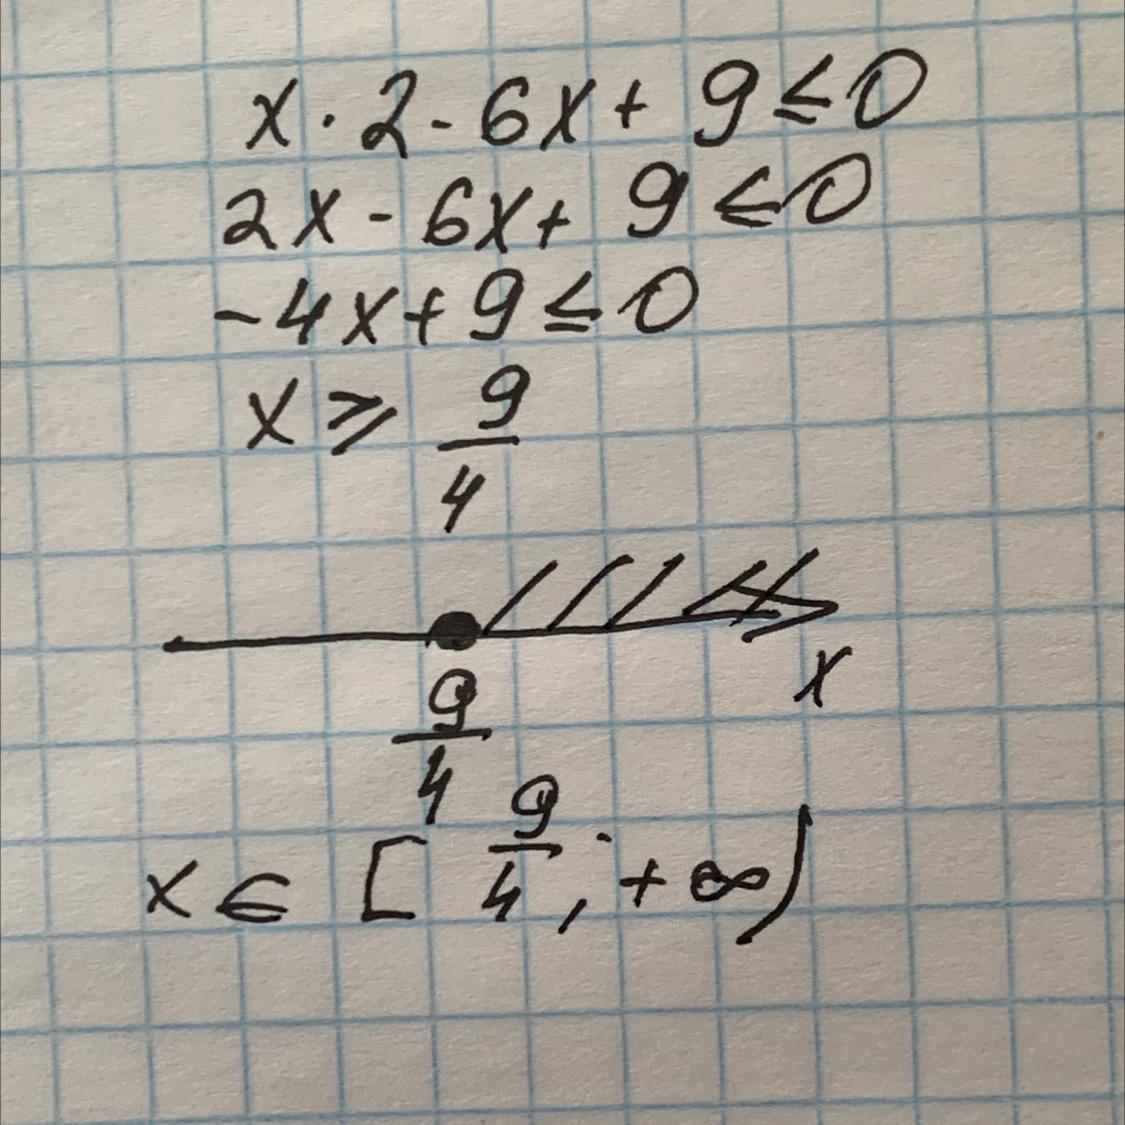 x · 2 - 6x + 9 ≤ 0
2x - 6x + 9 ≤ 0
-4x + 9 ≤ 0
x ≥ 9/4
x
9/4
x ∈ [9/4; +∞)